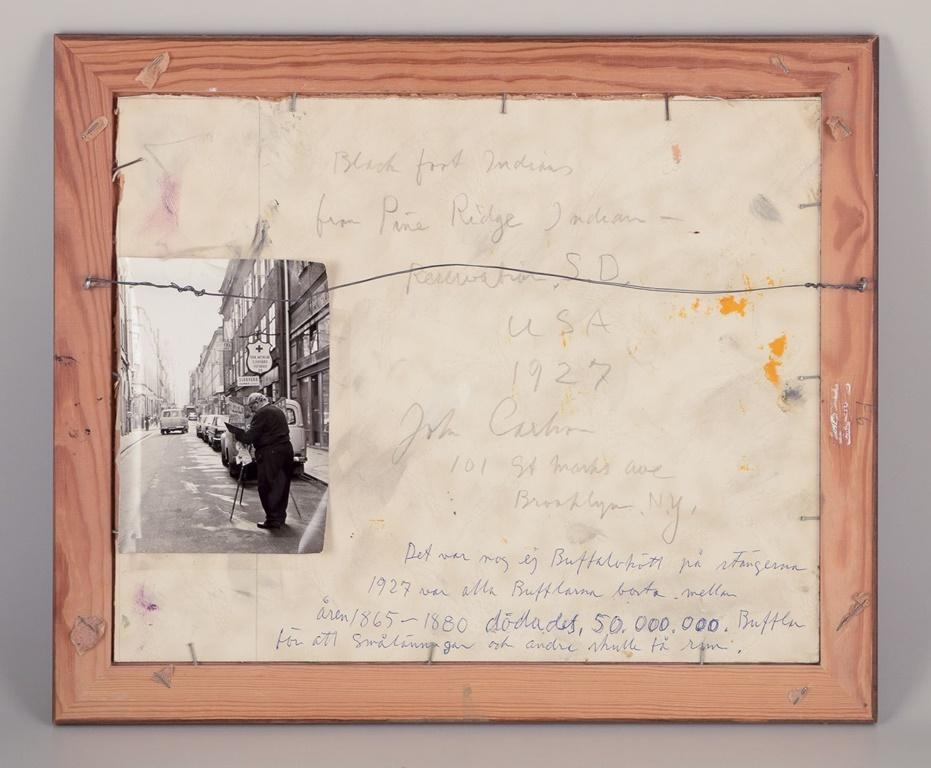 Black foot Indians
from Pine Ridge Indian –
Reservation, S.D.
USA
1927
John Carlson
101 St Marks ave
Brooklyn, N.Y.
Det var nog ej Buffalokött på stängerna
1927 var alla Bufflarna borta. mellan
åren 1865 – 1880 dödades, 50.000.000. Bufflar
för att Smålänningar och andra skulle få rum.